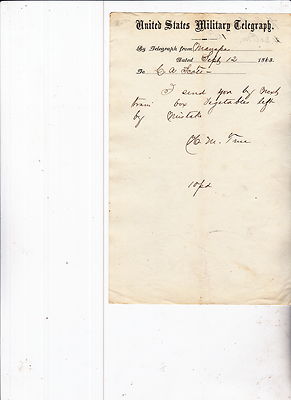 United States Military Telegraph.
By Telegraph from
Dated Sept 12 1863.
To C. A.
I send you by Next
train box Vegetables left
by Mistake
10 pd